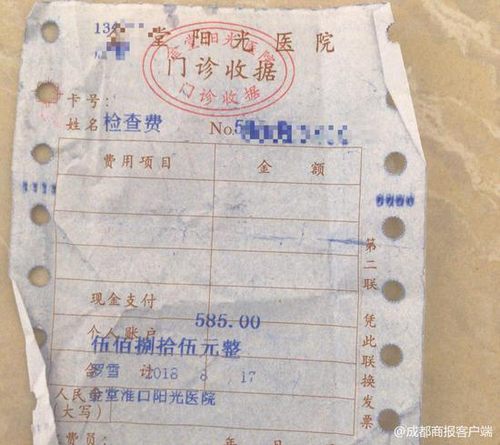 13
堂阳光医院
金堂阳光医院
门诊收据
门诊收据
卡号:
姓名 检查费 No.5
费用项目 金额
现金支付
585.00
个人账户
伍佰捌拾伍元整
合计
罗雪 2018 8 17
人民
金堂淮口阳光医院
(大写)
费员: 年 日
第二联 凭此联换发票
@成都商报客户端